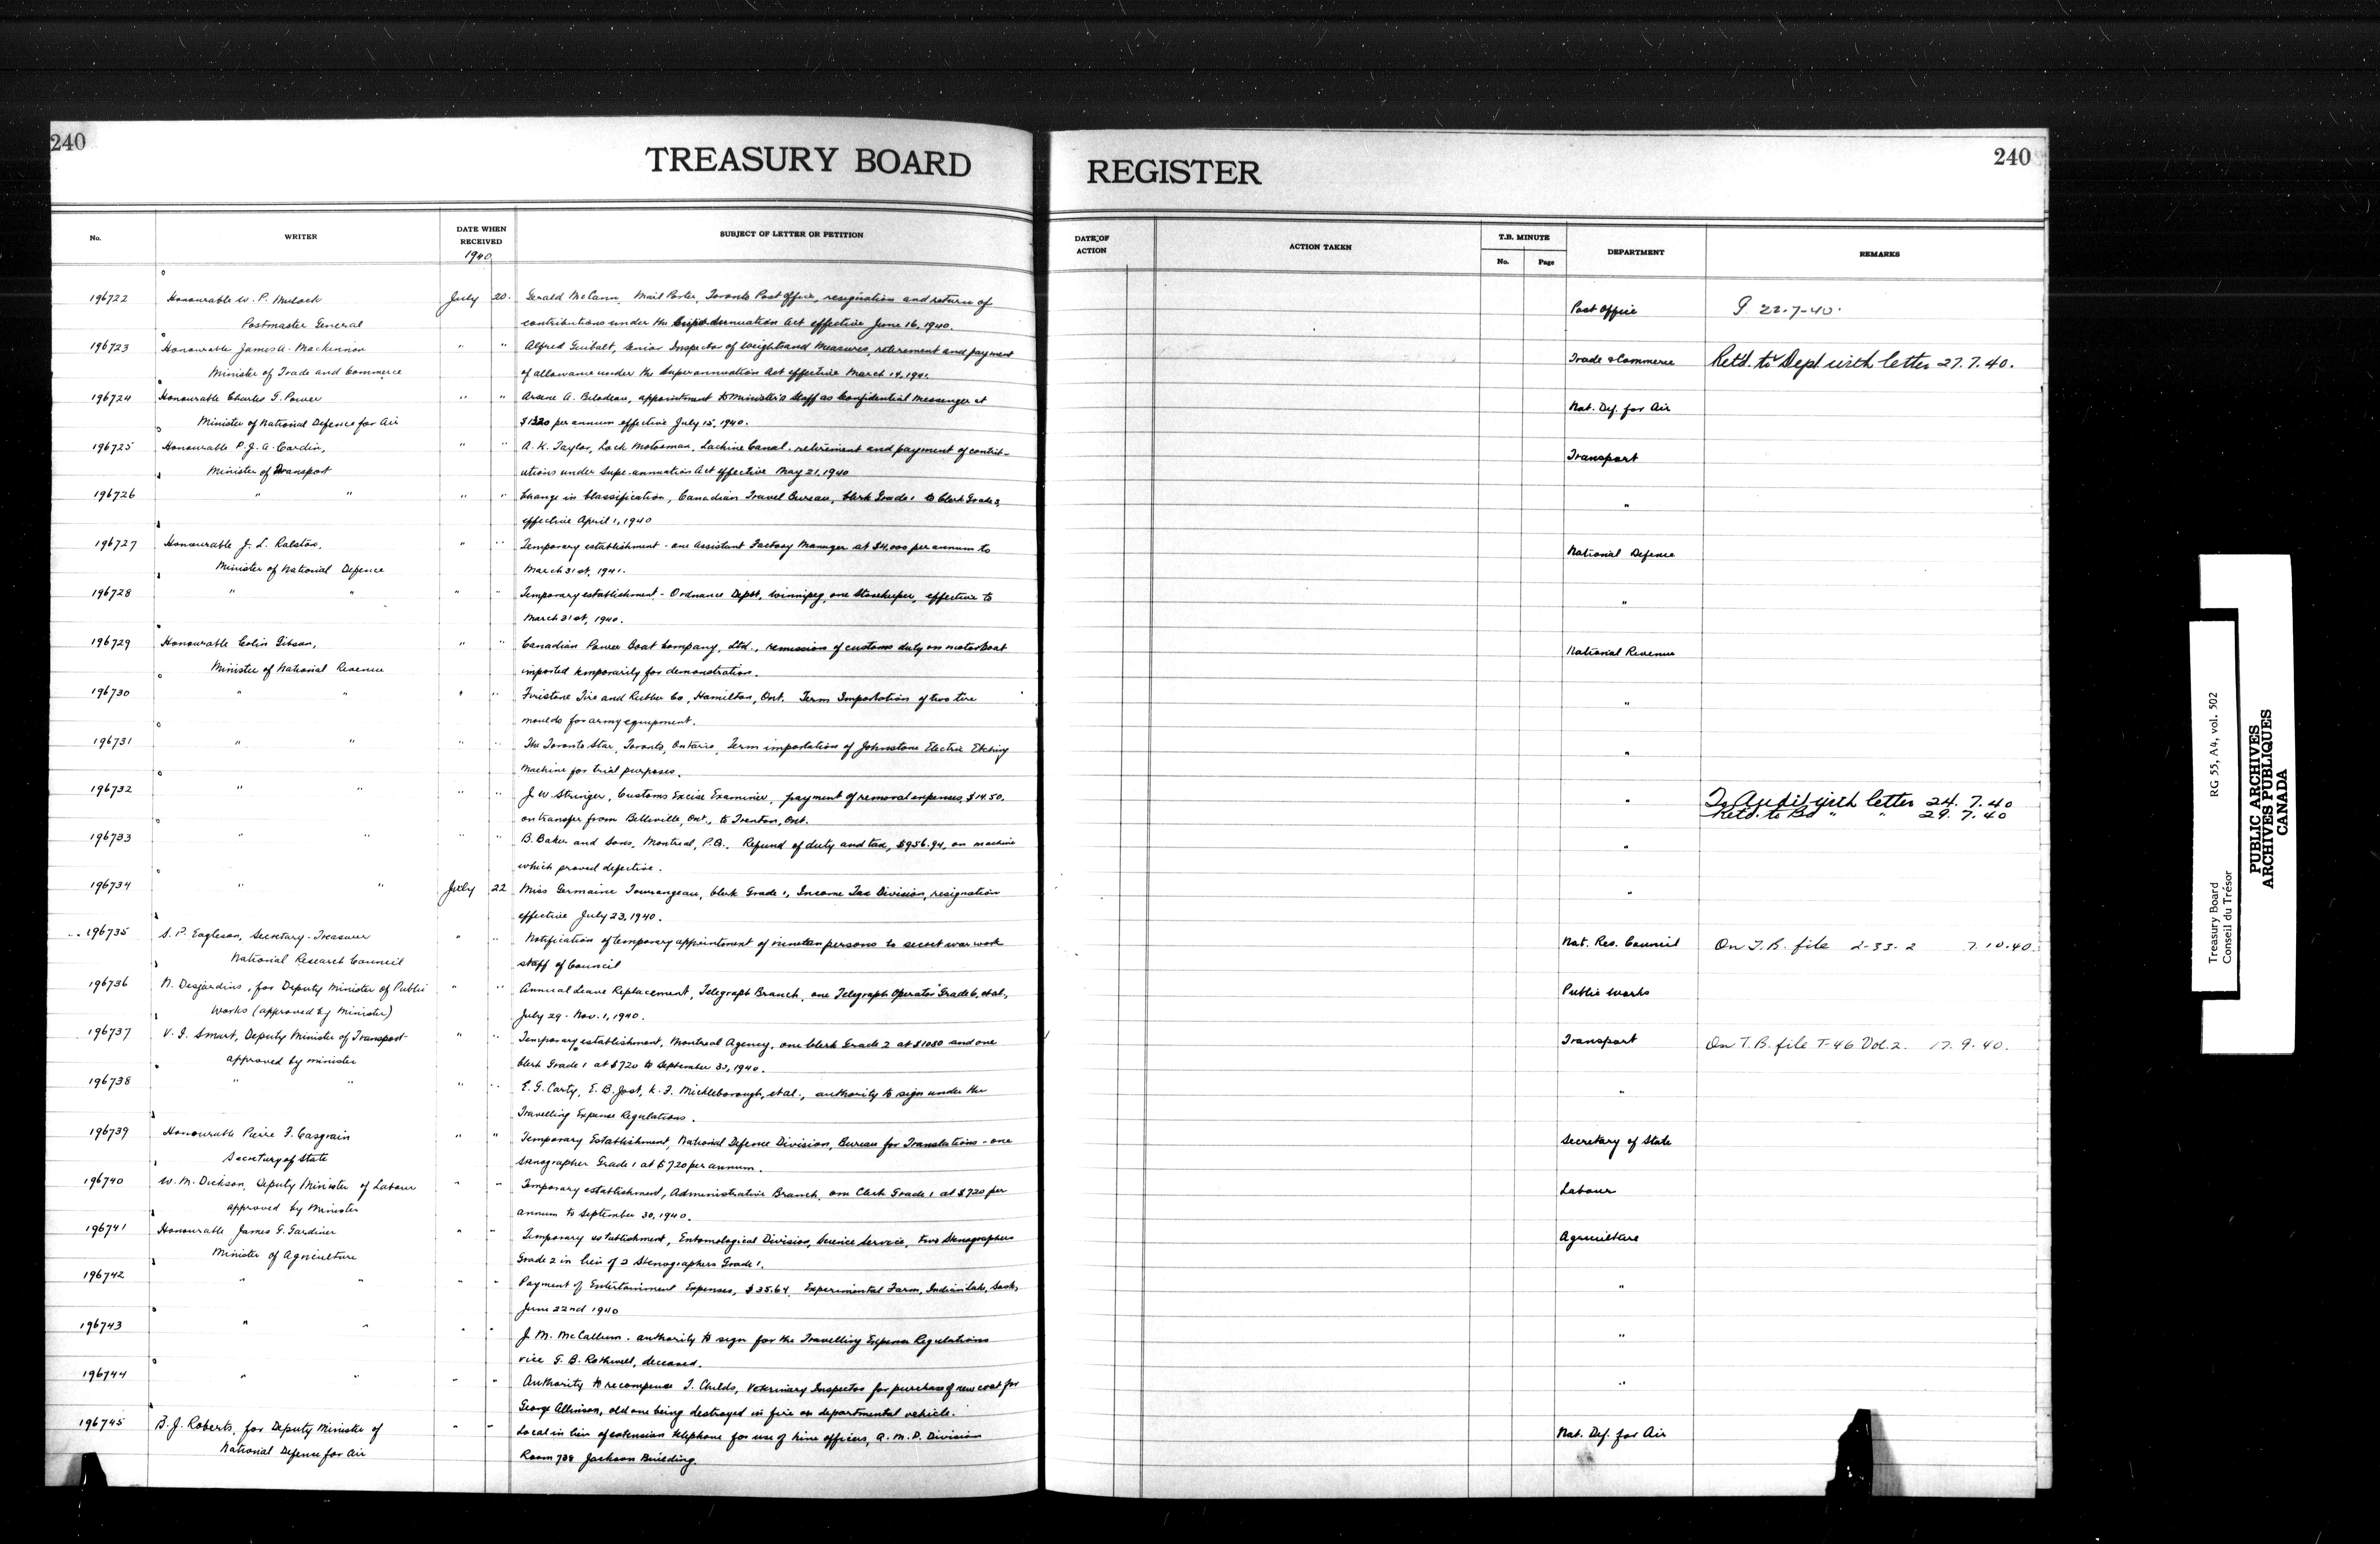 240
TREASURY BOARD
REGISTER
240
No.
WRITER
DATE WHEN RECEIVED
1940
SUBJECT OF LETTER OR PETITION
DATE OF ACTION
ACTION TAKEN
T.B. MINUTE
No.
Page
DEPARTMENT
REMARKS
196722 Honourable W. P. Mulock July 20. Gerald McCann, Mail Porter, Toronto Post Office, resignation and return of Post Office 22-7-40.
Postmaster General contributions under the Superannuation Act effective June 16, 1940.
196723 Honourable James A. MacKinnon " " Alfred Guibalt, Senior Inspector of Weights and Measures, retirement and payment Trade & Commerce Ret'd. to Dept with letter 27.7.40.
Minister of Trade and Commerce of allowance under the Superannuation Act effective March 14, 1941.
196724 Honourable Charles G. Power " " Arsene A. Bilodeau, appointment to Minister's Staff as Confidential Messenger at Nat. Def. for Air
Minister of National Defence for Air $1320 per annum effective July 15, 1940.
196725 Honourable P. J. A. Cardin, " " A. K. Taylor, Lock Motorman, Lachine Canal, retirement and payment of contrib- Transport
Minister of Transport utions under Superannuation Act effective May 21, 1940
196726 " " " " Change in classification, Canadian Travel Bureau, Clerk Grade 1 to Clerk Grade 3, "
effective April 1, 1940
196727 Honourable J. L. Ralston, " " Temporary establishment - one Assistant Factory Manager at $4,000 per annum to National Defence
Minister of National Defence March 31st, 1941.
196728 " " " " Temporary establishment - Ordnance Depot, Winnipeg, one Storekeeper, effective to "
March 31st, 1940.
196729 Honourable Colin Gibson, " " Canadian Power Boat Company, Ltd., remission of customs duty on motor boat National Revenue
Minister of National Revenue imported temporarily for demonstration.
196730 " " " " Firestone Tire and Rubber Co, Hamilton, Ont. Term Importation of two tire "
moulds for army equipment.
196731 " " " " The Toronto Star, Toronto, Ontario, Term importation of Johnstone Electric Etching "
Machine for trial purposes.
196732 " " " " J. W. Stringer, Customs Excise Examiner, payment of removal expenses, $14.50, " To Audit with letter 24.7.40
on transfer from Belleville, Ont., to Trenton, Ont. Retd. to Bd " " 29.7.40
196733 " " " " B. Baker and Sons, Montreal, P.Q., Refund of duty and tax, $956.94, on machine "
which proved defective.
196734 " " July 22 Miss Germaine Tourangeau, Clerk Grade 1, Income Tax Division, resignation "
effective July 23, 1940.
196735 S. P. Eagleson, Secretary-Treasurer " " Notification of temporary appointment of nineteen persons to secret war work Nat. Res. Council On T.B. file 2-33-2 7.10.40.
National Research Council staff of Council
196736 N. Desjardins, for Deputy Minister of Public " " Annual Leave Replacement, Telegraph Branch, one Telegraph Operator Grade 6, et al., Public Works
Works (approved by Minister) July 29 - Nov. 1, 1940.
196737 V. I. Smart, Deputy Minister of Transport " " Temporary establishment, Montreal Agency, one Clerk Grade 2 at $1080 and one Transport On T.B. file T-46 Vol.2. 17.9.40.
approved by minister Clerk Grade 1 at $720 to September 30, 1940.
196738 " " " " E. G. Carty, E. B. Jost, K. F. Mickleborough, et al., authority to sign under the "
Travelling Expense Regulations.
196739 Honourable Pierre F. Casgrain " " Temporary Establishment, National Defence Division, Bureau for Translations - one Secretary of State
Secretary of State Stenographer Grade 1 at $720 per annum.
196740 W. M. Dickson, Deputy Minister of Labour " " Temporary establishment, Administrative Branch, one Clerk Grade 1 at $720 per Labour
approved by Minister annum to September 30, 1940.
196741 Honourable James G. Gardiner " " Temporary establishment, Entomological Division, Science Service, two Stenographers Agriculture
Minister of Agriculture Grade 2 in lieu of 2 Stenographers Grade 1.
196742 " " " " Payment of Entertainment Expenses, $35.64, Experimental Farm, Indian Lake, Sask, "
June 22nd 1940
196743 " " " " J. M. McCallum, authority to sign for the Travelling Expense Regulations "
vice G. B. Rothwell, deceased.
196744 " " " " Authority to recompense T. Childs, Veterinary Inspector for purchase of new coat for "
George Allinson, old one being destroyed in fire on departmental vehicle.
196745 B. J. Roberts, for Deputy Minister of " " Local in lieu of extension telephone for use of nine officers, A.M.P. Division Nat. Def. for Air
National Defence for Air Room 708 Jackson Building.
Treasury Board RG 55, A4, vol. 502
Conseil du Trésor
PUBLIC ARCHIVES
ARCHIVES PUBLIQUES
CANADA